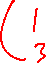 (1
3